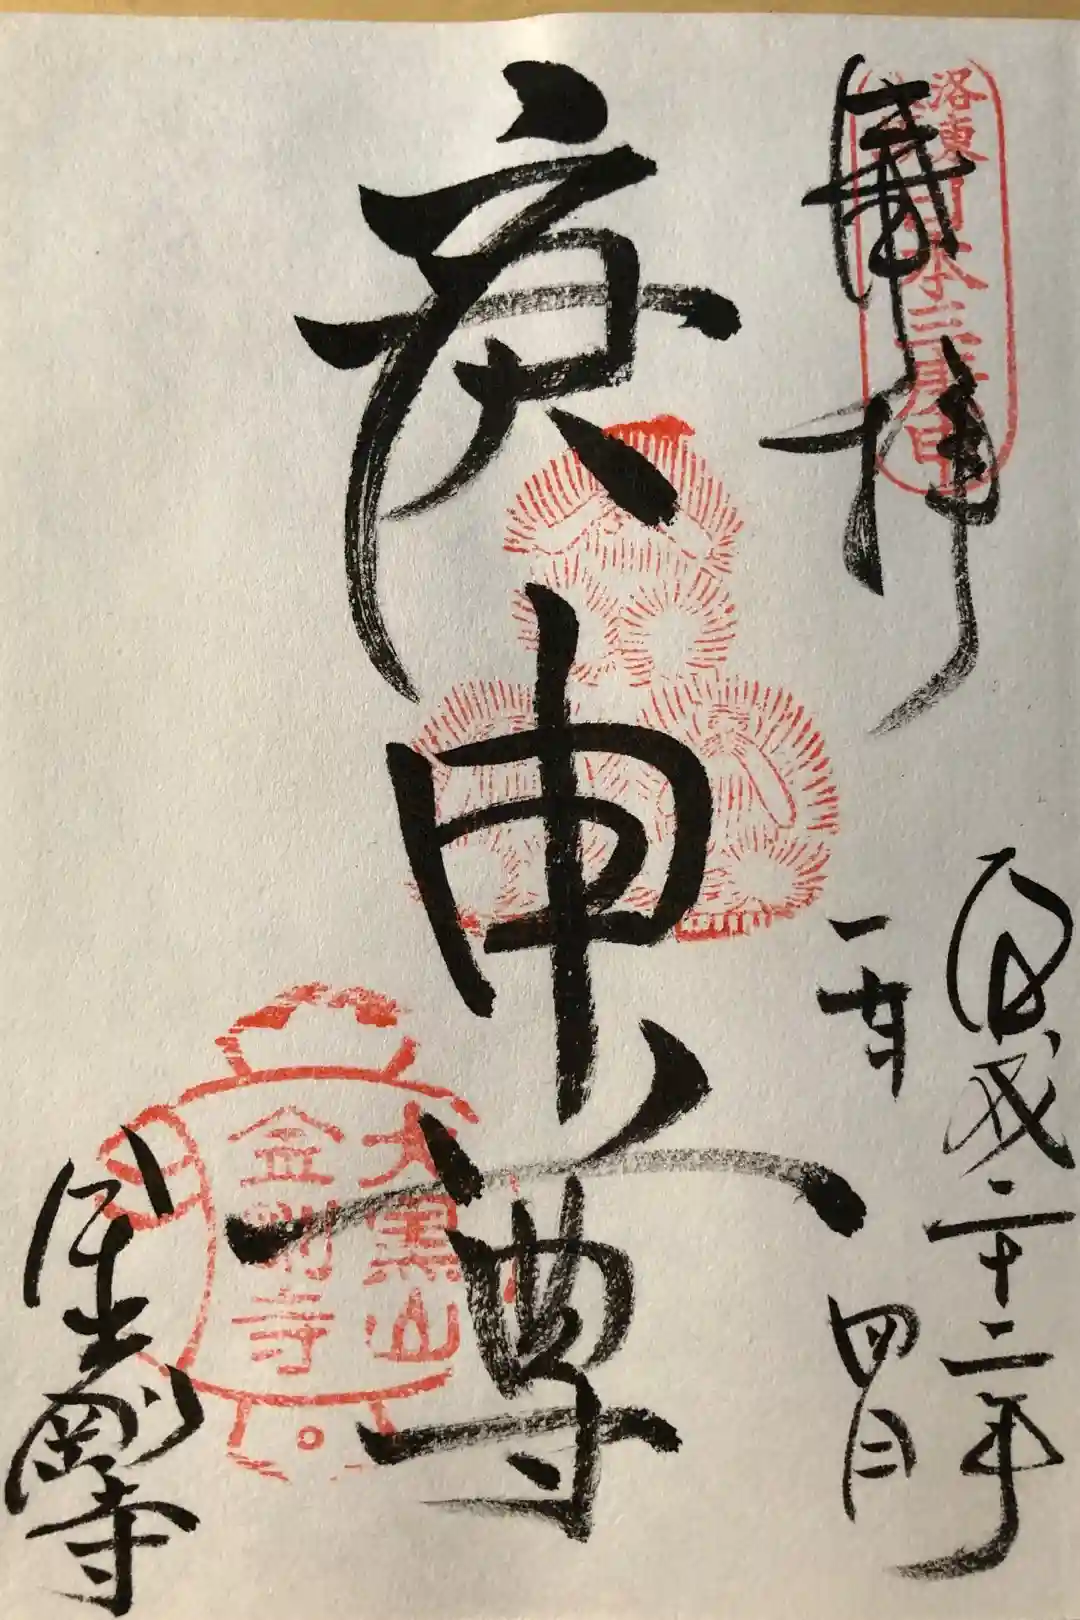 洛東
日本三庚申
奉拝
二十二年
四月
庚申尊
大黒山
金剛寺
金剛寺